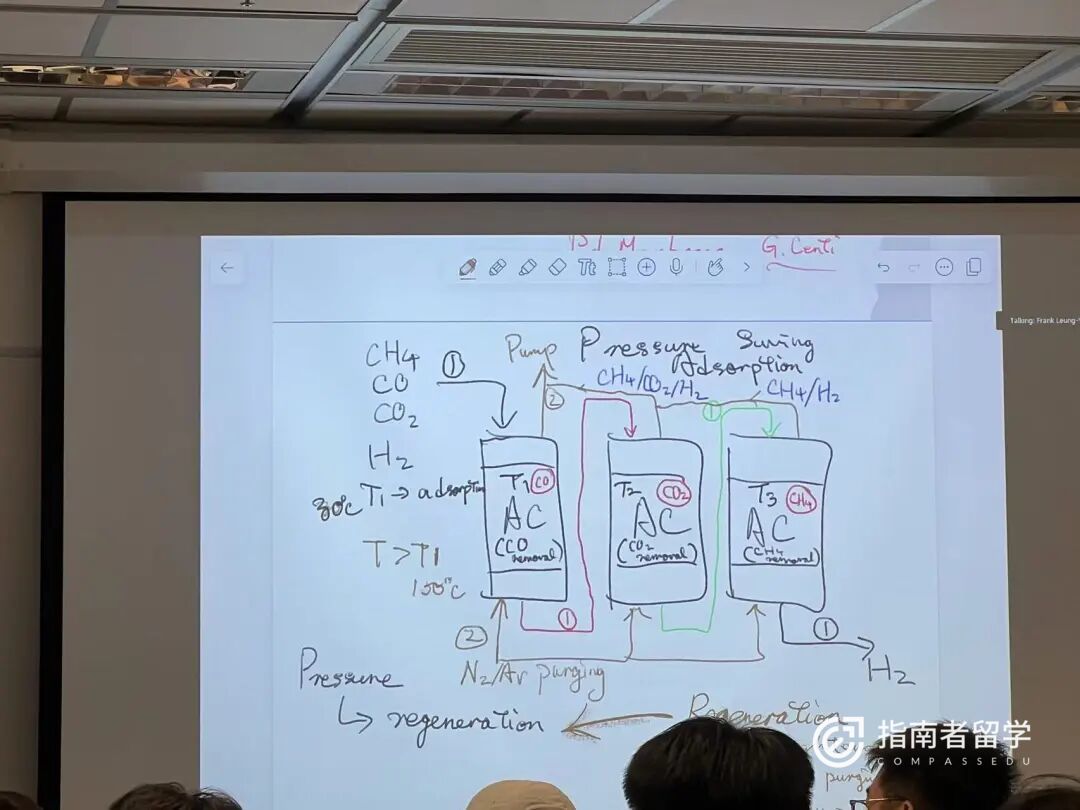 G. Centi
Tt
Talking: Frank Leung-
CH4
CO
CO2
H2
①
Pump
Pressure Swing
Adsorption
②
CH4/CO2/H2
①
CH4/H2
30°C T1 → adsorption
T > T1
150°C
T1 CO
AC
(CO
removal)
T2 CO2
AC
(CO2
removal)
T3 CH4
AC
(CH4
removal)
①
①
②
H2
N2/Ar purging
Pressure
↳ regeneration
Regeneration
指南者留学
COMPASSEDU